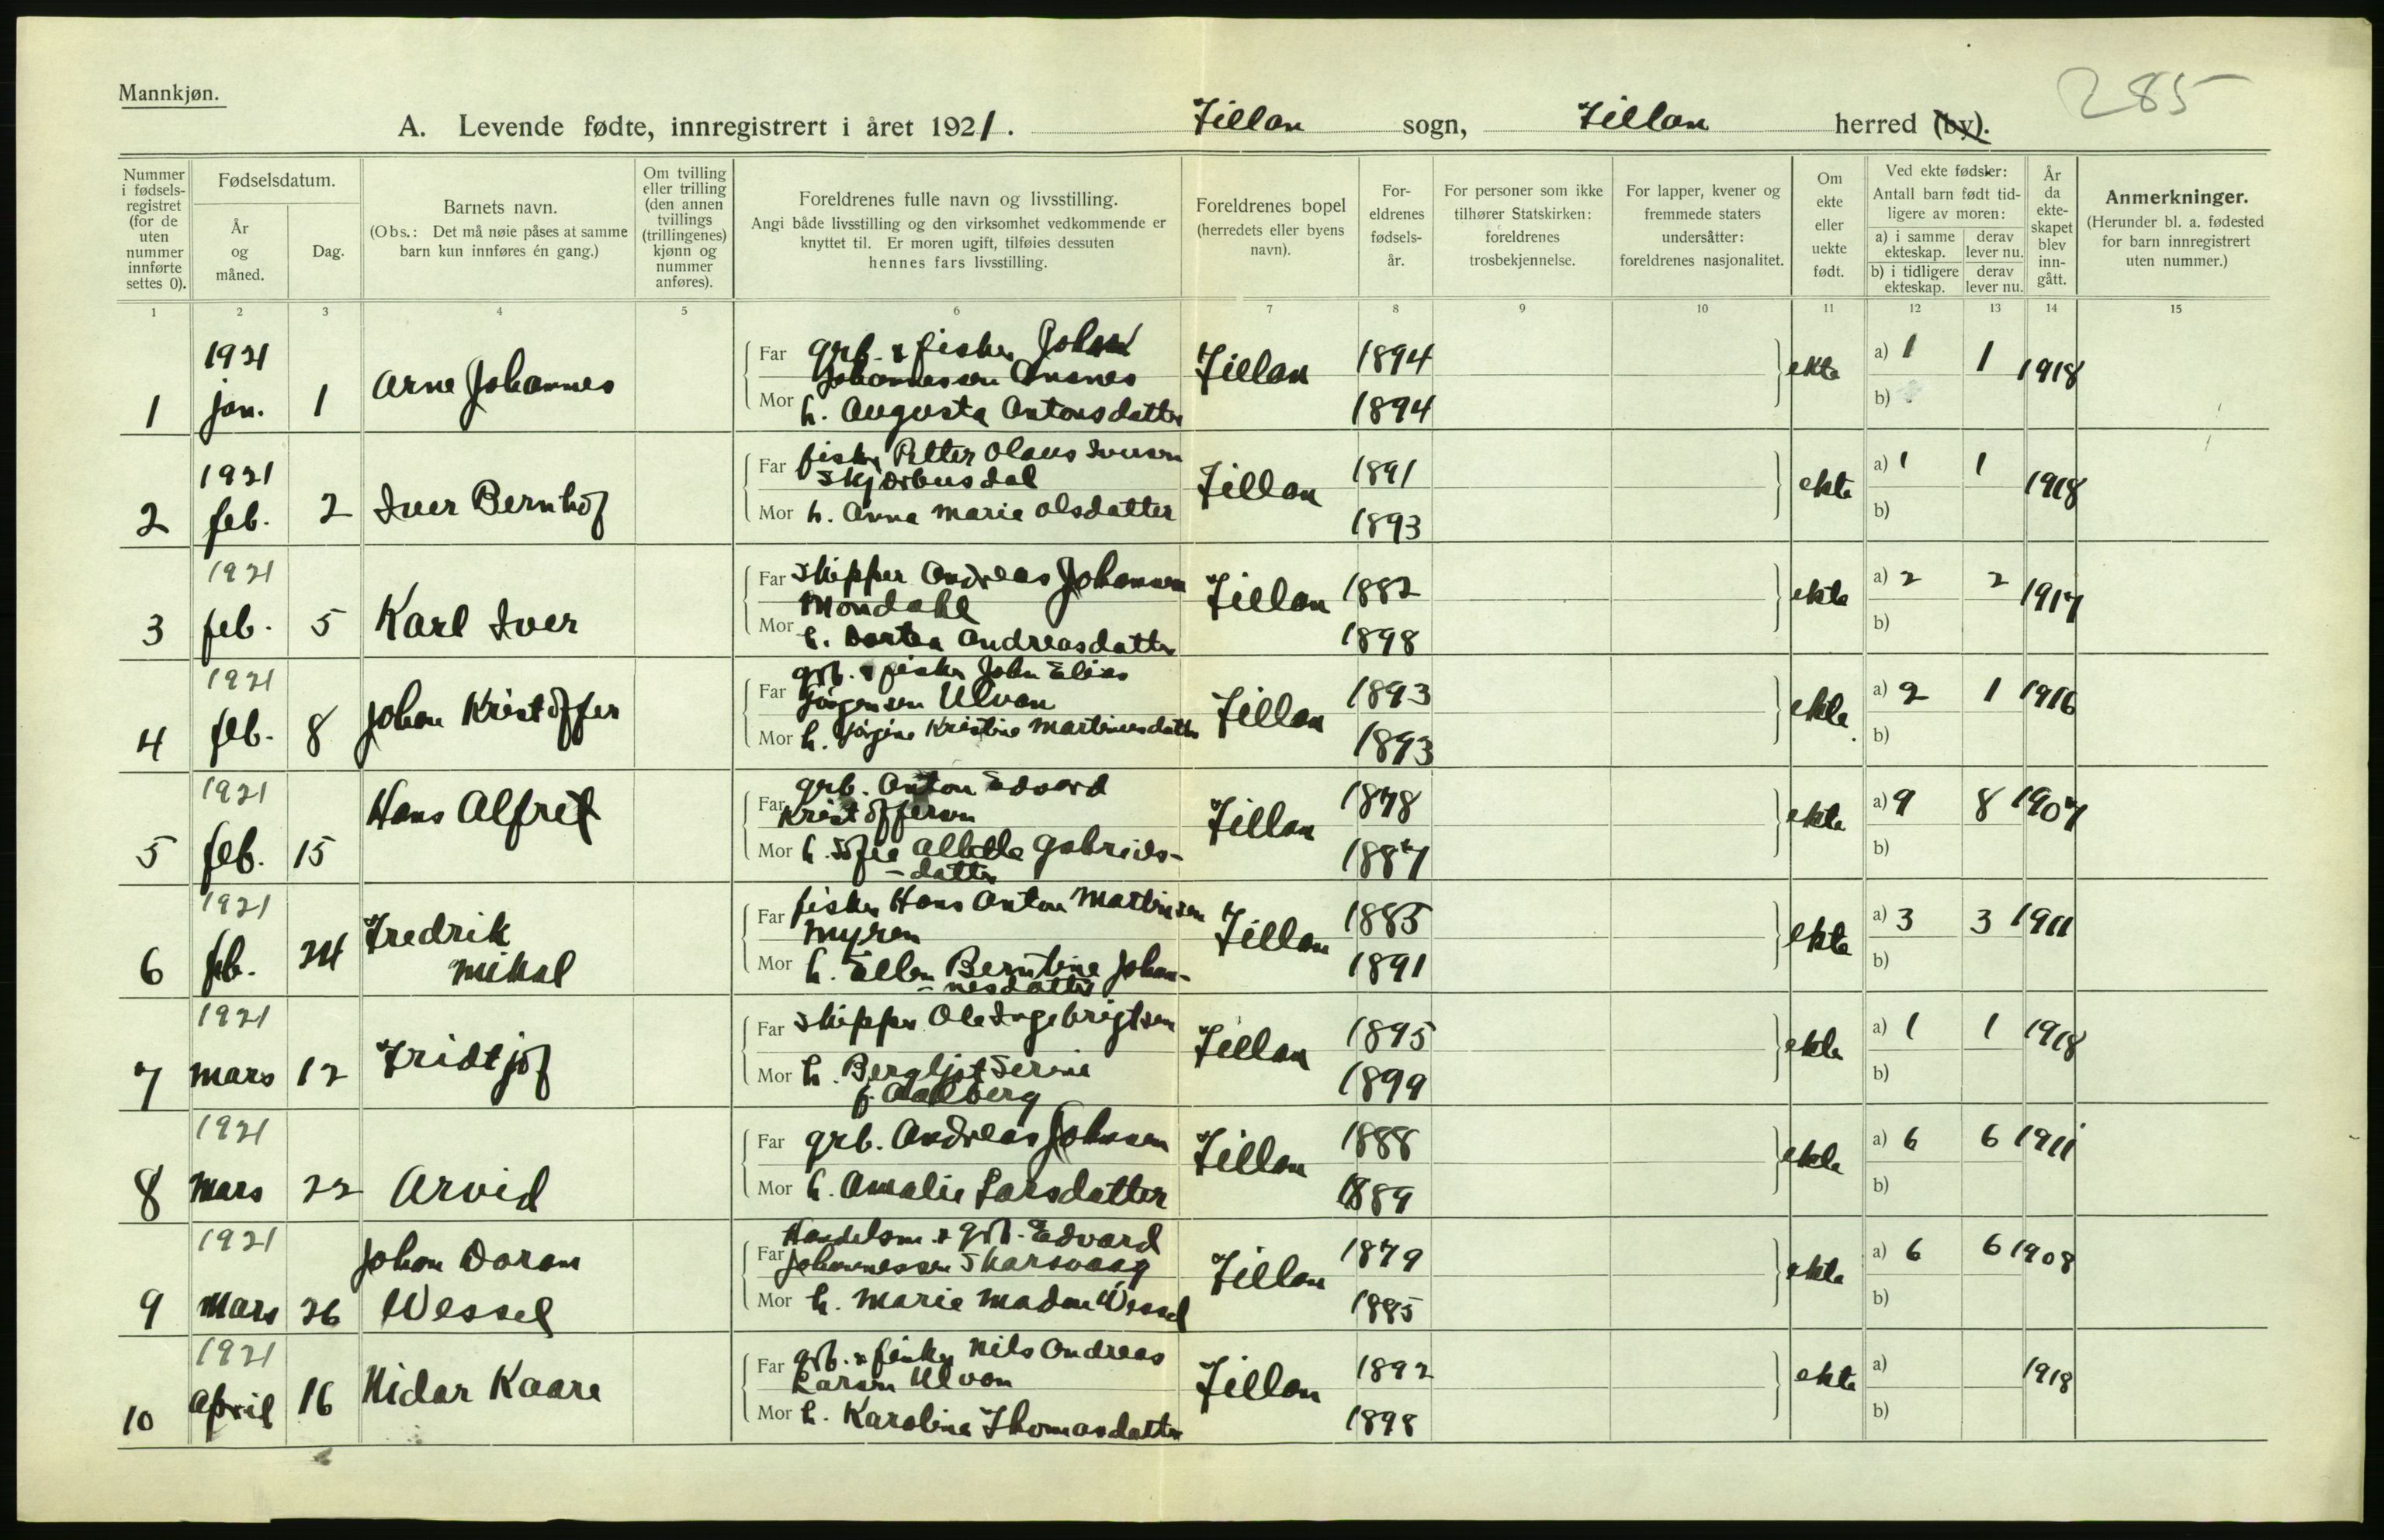 285
Mannkjøn.
A. Levende fødte, innregistrert i året 1921. Fillan sogn, Fillan herred (by).
Nummer i fødselsregistret (for de uten nummer innførte settes 0).
Fødselsdatum.
År og måned.
Dag.
Barnets navn.
(Obs.: Det må nøie påses at samme barn kun innføres én gang.)
Om tvilling eller trilling (den annen tvillings (trillingenes) kjønn og nummer anføres).
Foreldrenes fulle navn og livsstilling.
Angi både livsstilling og den virksomhet vedkommende er knyttet til. Er moren ugift, tilføies dessuten hennes fars livsstilling.
Foreldrenes bopel (herredets eller byens navn).
Foreldrenes fødselsår.
For personer som ikke tilhører Statskirken: foreldrenes trosbekjennelse.
For lapper, kvener og fremmede staters undersåtter: foreldrenes nasjonalitet.
Om ekte eller uekte født.
Ved ekte fødsler:
Antall barn født tidligere av moren:
a) i samme ekteskap. derav lever nu.
b) i tidligere ekteskap. derav lever nu.
År da ekteskapet blev inngått.
Anmerkninger.
(Herunder bl. a. fødested for barn innregistrert uten nummer.)
1 2 3 4 5 6 7 8 9 10 11 12 13 14 15
1 1921 jan. 1 Arne Johannes
Far grb. & fisker Johan
Johannessen Ansnes Fillan 1894 ekte a) 1 1 1918
Mor h. Augusta Antonsdatter 1894 b)
2 1921 feb. 2 Iver Bernhof
Far fisker Petter Olaus Iversen
Skjærbusdal Fillan 1891 ekte a) 1 1 1918
Mor h. Anna Marie Olsdatter 1893 b)
3 1921 feb. 5 Karl Iver
Far Skipper Andreas Johannesen
Mondahl Fillan 1882 ekte a) 2 2 1917
Mor h. Dortea Andreasdatter 1898 b)
4 1921 feb. 8 Johan Kristoffer
Far grb. & fisker John Elias
Jørgensen Ulvan Fillan 1893 ekte a) 2 1 1916
Mor h. Jørgine Kristine Martinusdatter 1893 b)
5 1921 feb. 15 Hans Alfred
Far grb. Anton Edvard
Kristoffersen Fillan 1878 ekte a) 9 8 1907
Mor h. Sofie Albertha Gabriels-
-datter 1887 b)
6 1921 feb. 24 Fredrik
Mikal
Far fisker Hans Anton Martinsen
Myren Fillan 1885 ekte a) 3 3 1911
Mor h. Ellen Berntine Johan-
-nesdatter 1891 b)
7 1921 mars 12 Fridtjof
Far Skipper Ole Ingebrigtsen Fillan 1895 ekte a) 1 1 1918
Mor h. Bergljot Serine
f. Aalberg 1899 b)
8 1921 mars 22 Arvid
Far grb. Andreas Johnsen Fillan 1888 ekte a) 6 6 1911
Mor h. Amalie Larsdatter 1889 b)
9 1921 mars 26 Johan Doran
Wessel
Far Handelsm. & grb. Edvard
Johannessen Skarsvaag Fillan 1879 ekte a) 6 6 1908
Mor h. Marie Wessel 1885 b)
10 1921 April 16 Nidar Kaare
Far grb. & fisker Nils Andreas
Larsen Ulvan Fillan 1892 ekte a) 1918
Mor h. Karoline Thomasdatter 1898 b)